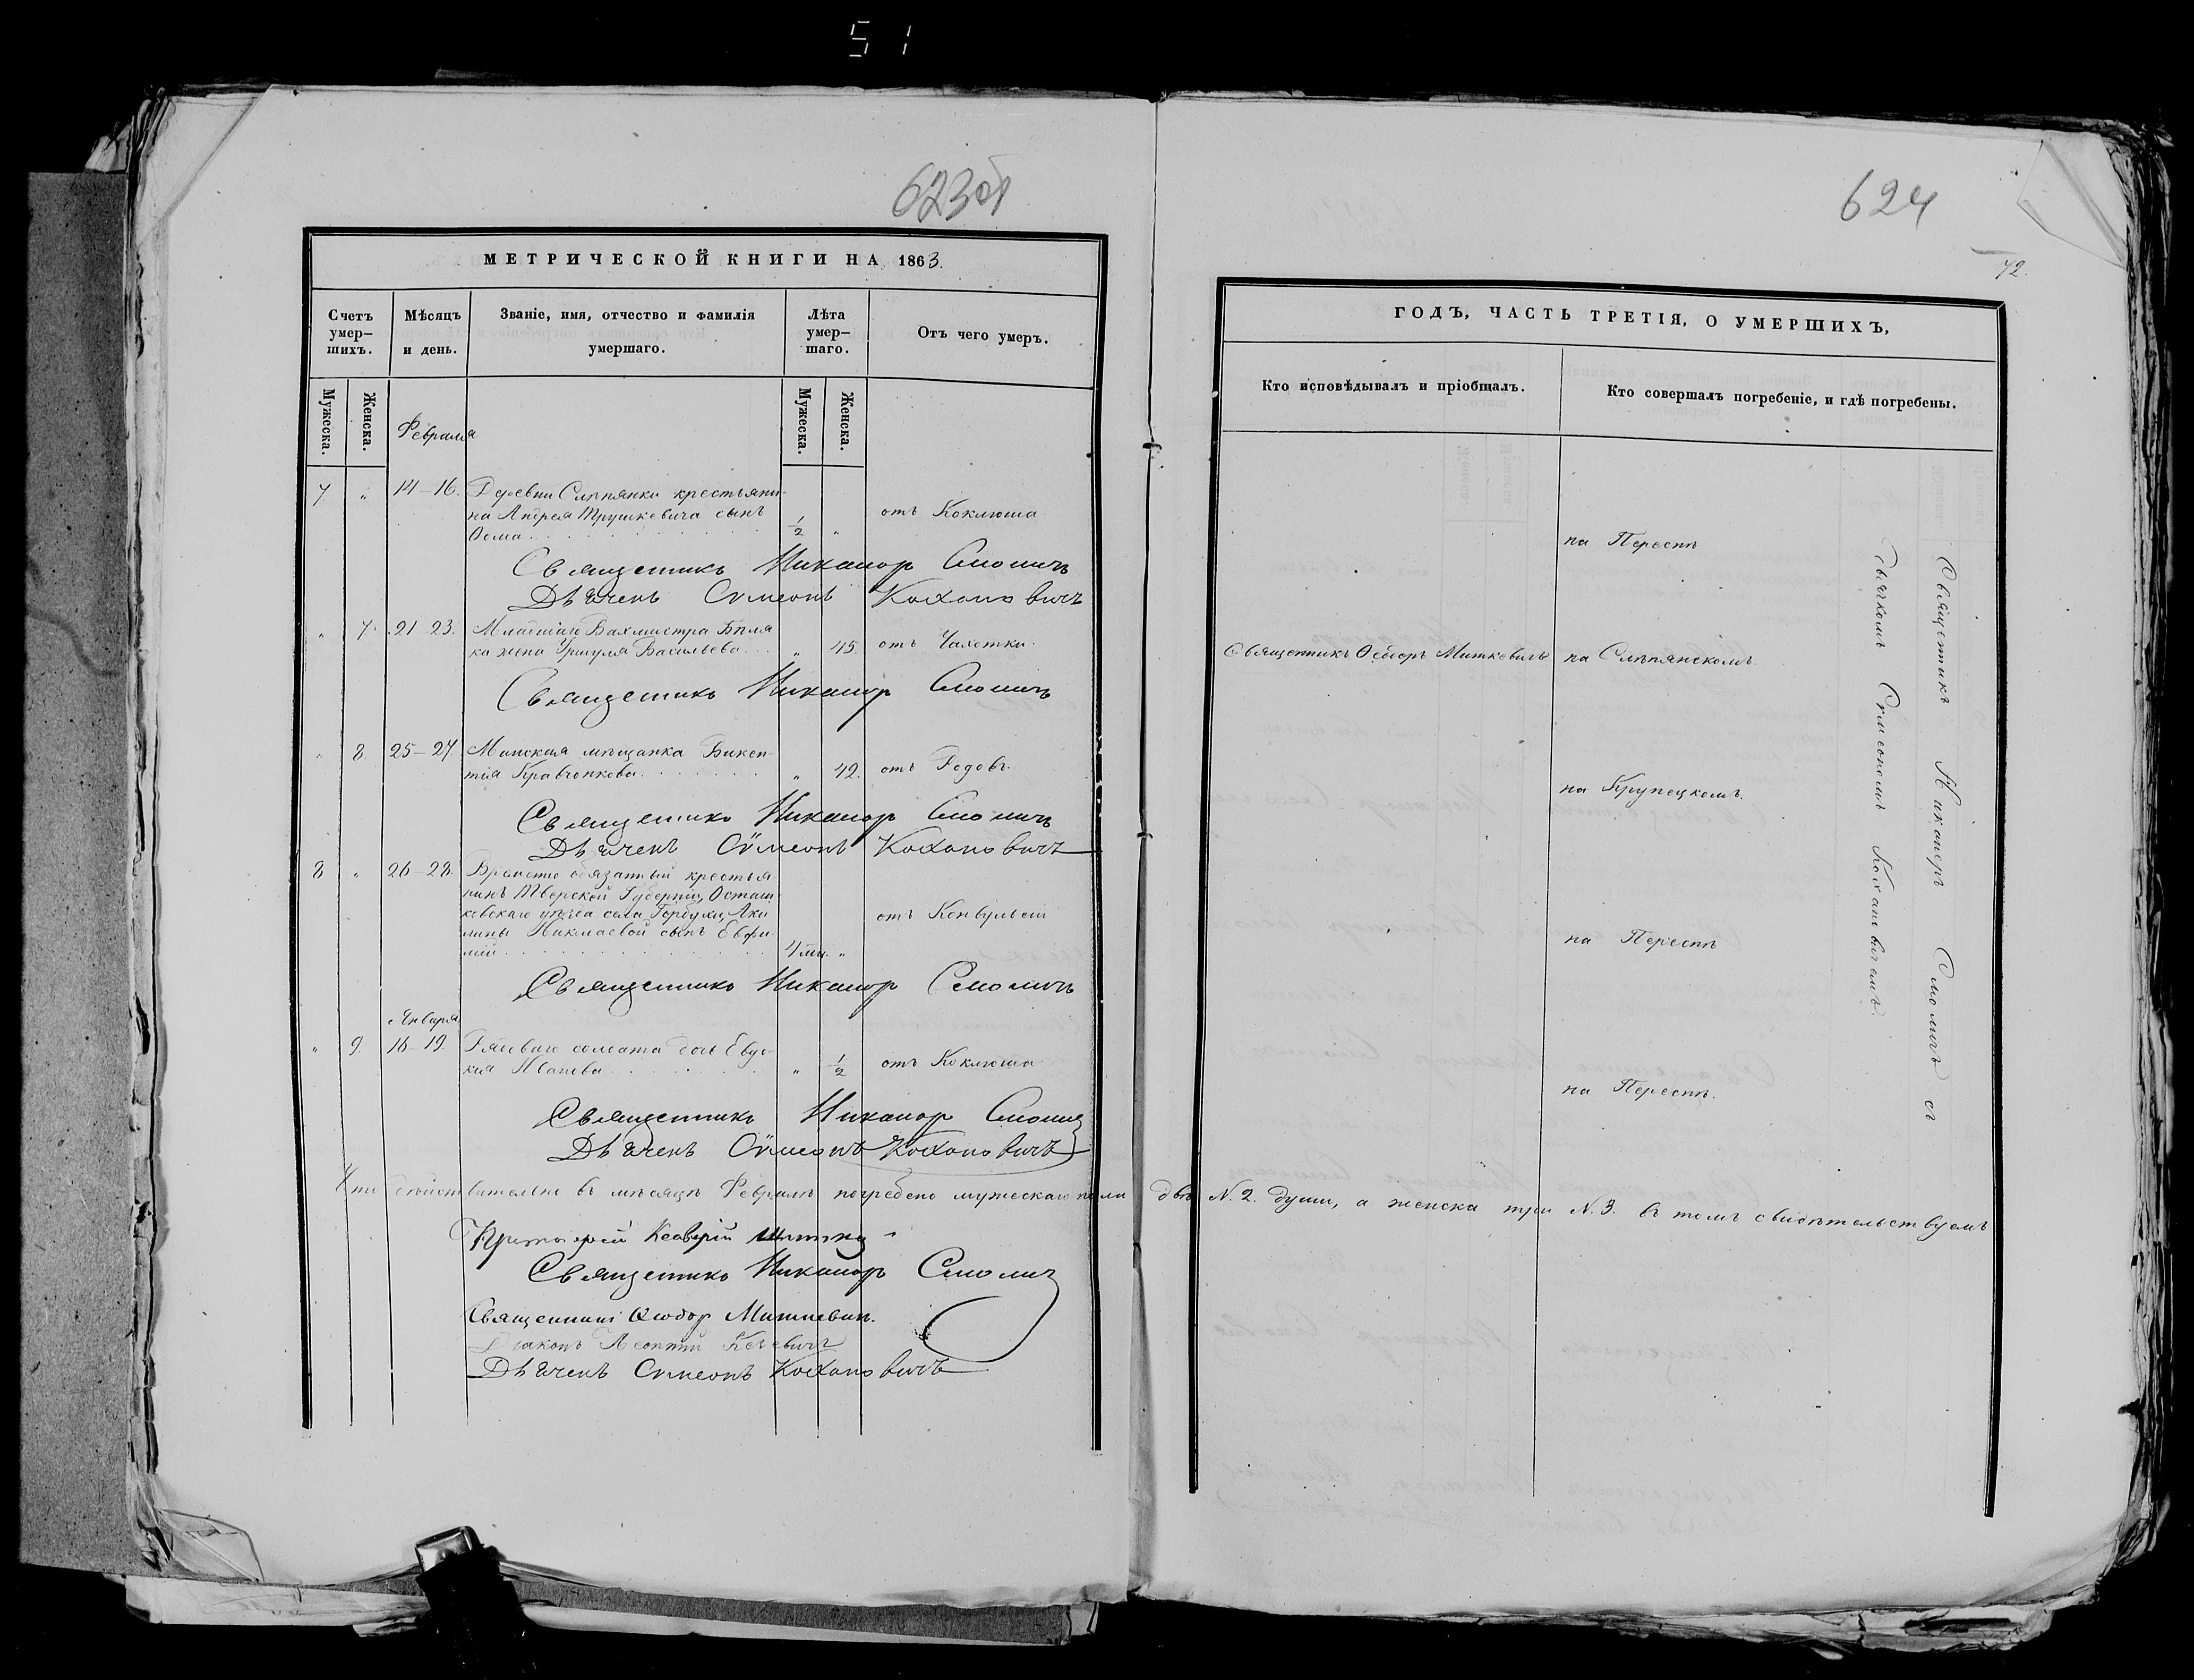 51
623об
МЕТРИЧЕСКОЙ КНИГИ НА 1863.
Счетъ умер-шихъ.
Мѣсяцъ и день.
Званіе, имя, отчество и фамилія умершаго.
Лѣта умер-шаго.
Отъ чего умеръ.
Мужеска.
Женска.
Мужеска.
Женска.
Февраля
7 " 14–16. Деревни Слѣпянки крестьяни-
на Андрея Трушкевича сынъ 1/2 " отъ Коклюша
Ѳома
Священникъ Никаноръ Смоличъ
Дьячекъ Сѵмеонъ Кохановичъ
" 7. 21–23. Младшаго Вахмистра Бѣля
ка жена Уршуля Васильева " 45. отъ Чахотки.
Священникъ Никаноръ Смоличъ
" 8. 25–27. Минская мѣщанка Викен-
тія Кравчонкова " 42. отъ Родовъ.
Священникъ Никаноръ Смоличъ
Дьячекъ Сѵмеонъ Кохановичъ
8 " 26–28. Временно обязанный крестья
нинъ Тверской Губерніи, Осташ
ковскаго уѣзда села Горбухи, Аки отъ Конвульсій
лины Николаевой сынъ Евфи-
мій 4 "
Священникъ Никаноръ Смоличъ
Января
" 9. 18–19. Рядоваго солдата дочь Евдо-
кия Иванова " 1/2 отъ Коклюша
Священникъ Никаноръ Смоличъ
Дьячекъ Сѵмеонъ Кохановичъ
Что дѣйствительно въ мѣсяцѣ Февралѣ погребено мужескаго пола двѣ N. 2. души, а женска три N. 3. въ томъ свидѣтельствуемъ
Протоіерей
Священникъ Никаноръ Смоличъ
Священникъ Ѳеодоръ Миткевичъ.
Діаконъ Леонтій
Дьячекъ Сѵмеонъ Кохановичъ
624
72.
ГОДЪ, ЧАСТЬ ТРЕТІЯ, О УМЕРШИХЪ,
Кто исповѣдывалъ и пріобщалъ.
Кто совершалъ погребеніе, и гдѣ погребены.
на Переспѣ
Священникъ Ѳеодоръ Миткевичъ на Слѣпянскомъ.
на Крупецкомъ.
на Переспѣ
на Переспѣ.
Священникъ Никаноръ Смоличъ съ
Дьячкомъ Сѵмеономъ Кохановичемъ.